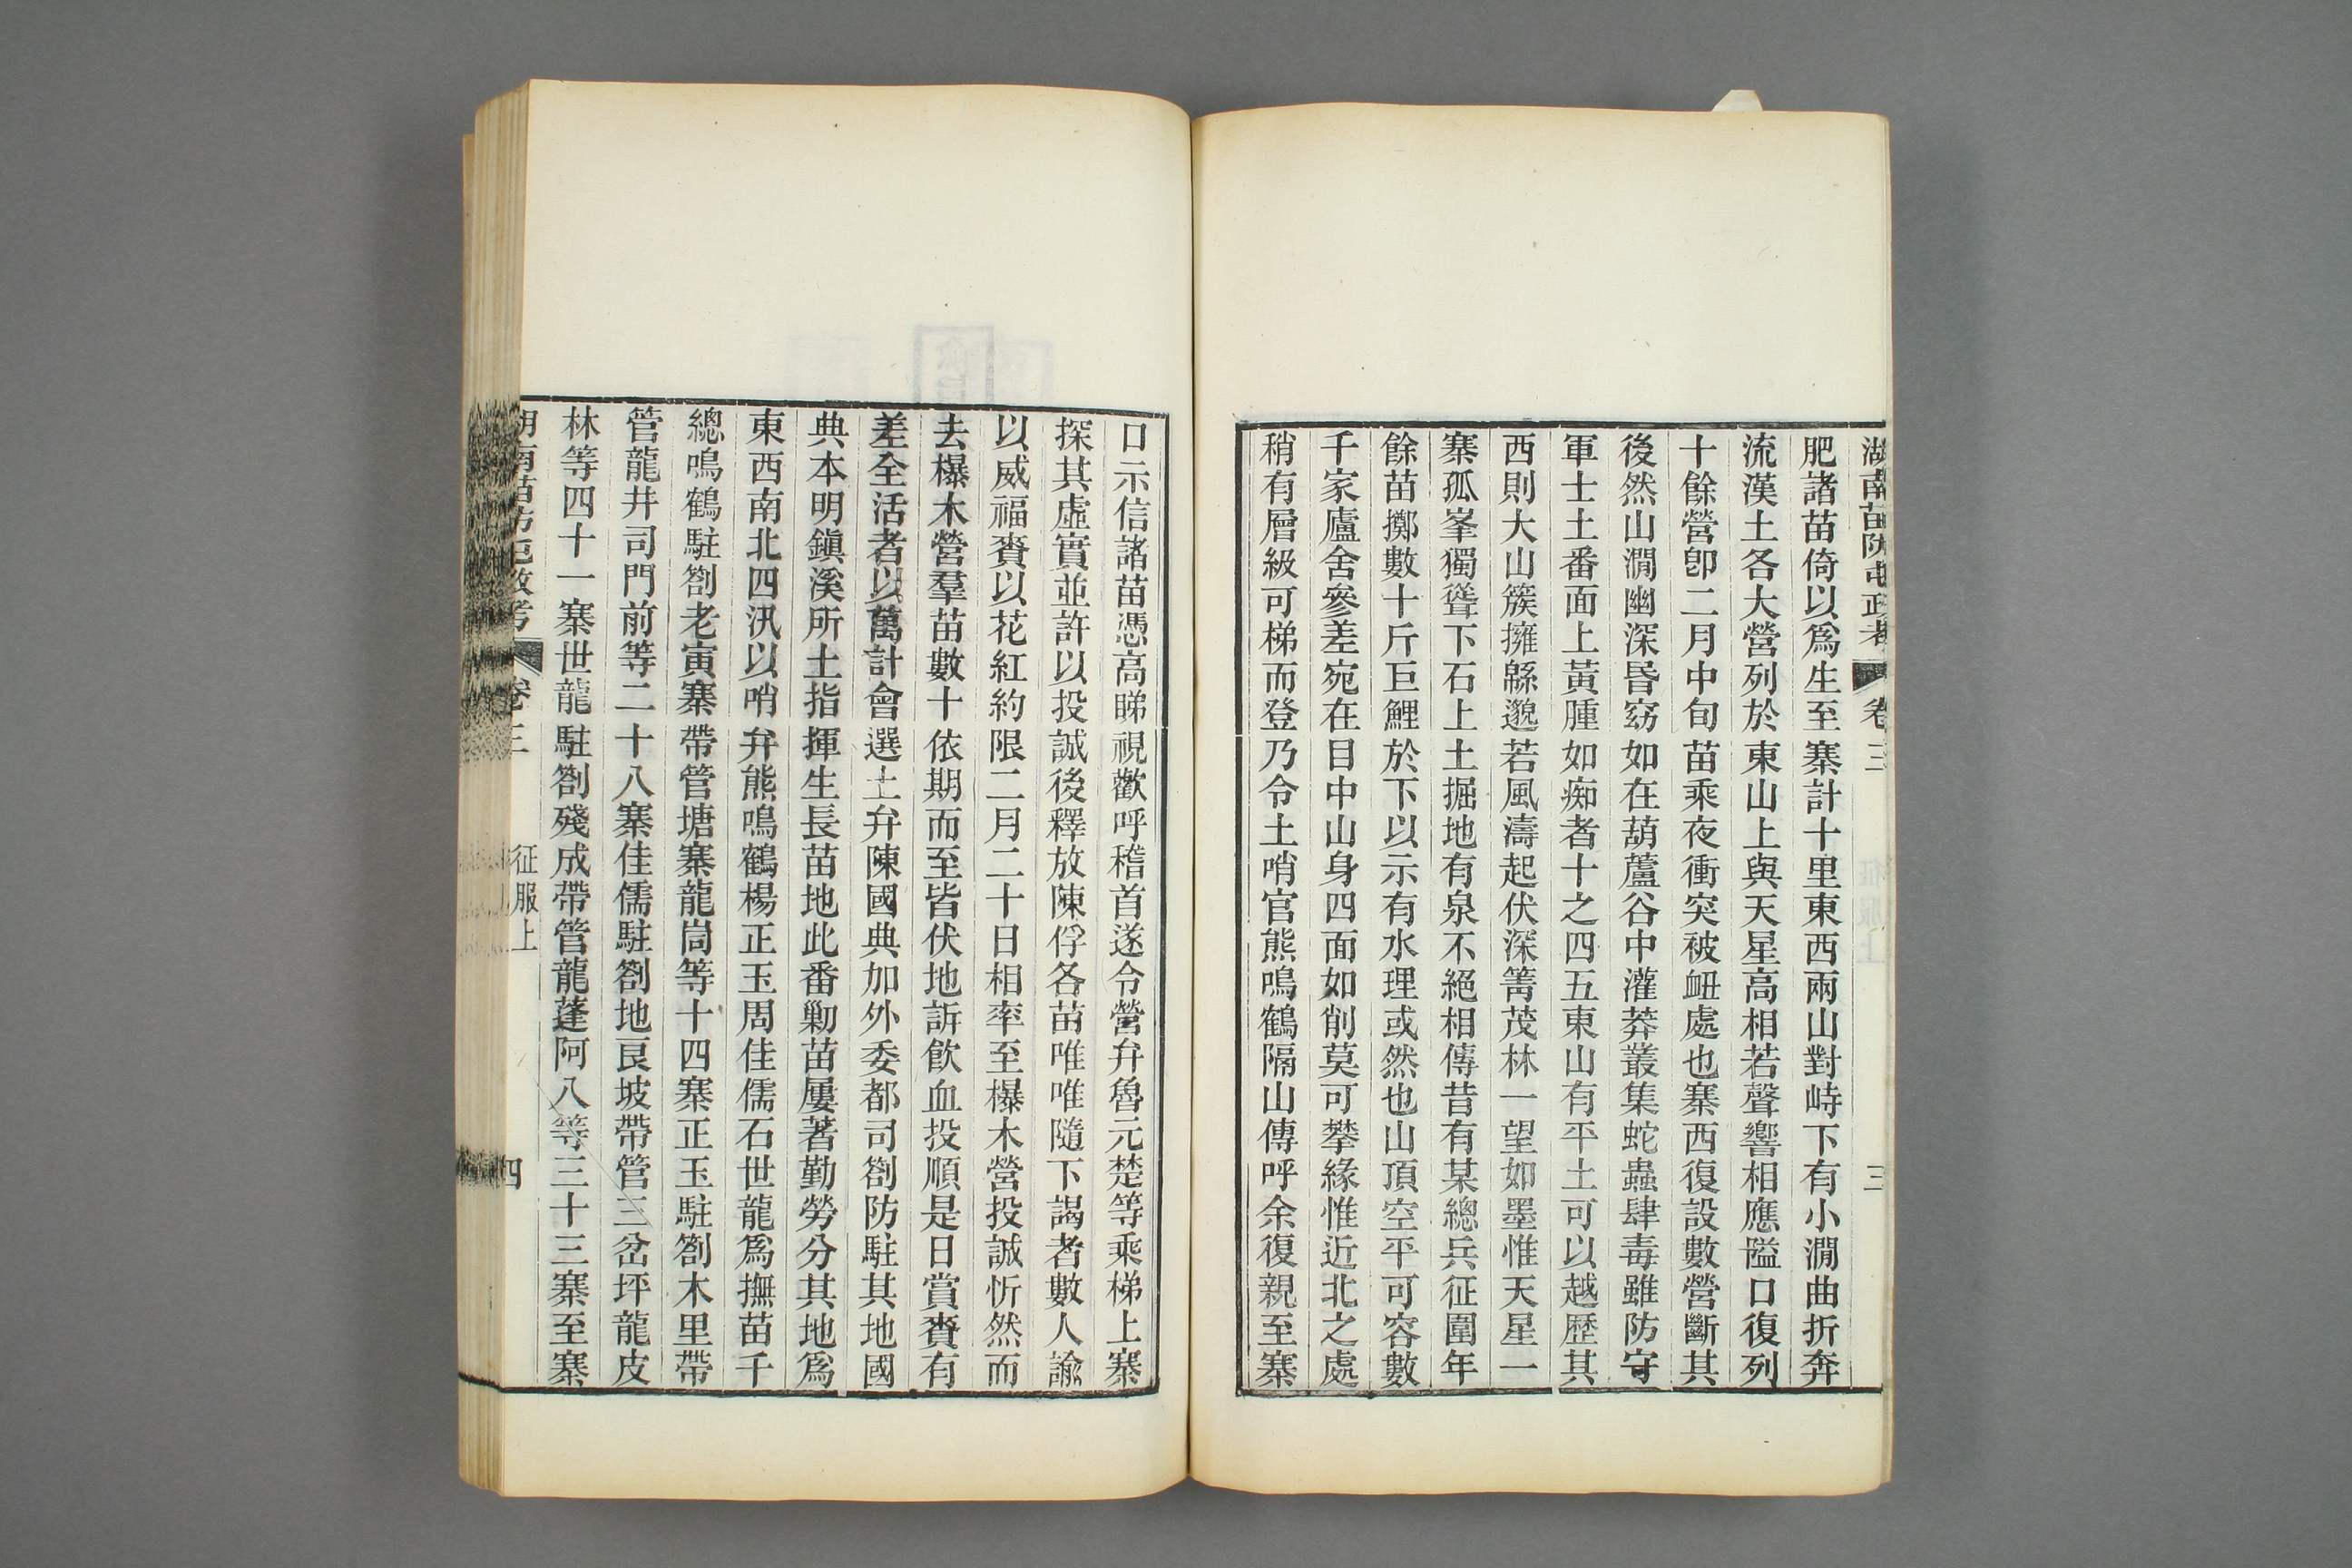 湖南苗防屯政考 卷三 三
肥諸苗倚以爲生至寨計十里東西兩山對峙下有小澗曲折奔
流漢土各大營列於東山上與天星高相若聲響相應隘口復列
十餘營卽二月中旬苗乘夜衝突被衄處也寨西復設數營斷其
後然山澗幽深昬窈如在葫蘆谷中灌莽叢集蛇蟲肆毒雖防守
軍士土番面上黃腫如痴者十之四五東山有平土可以越歷其
西則大山簇擁緜邈若風濤起伏深箐茂林一望如墨惟天星一
寨孤峯獨聳下石上土掘地有泉不絕相傳昔有某總兵征圍年
餘苗擲數十斤巨鯉於下以示有水理或然也山頂空平可容數
千家廬舍參差宛在目中山身四面如削莫可攀緣惟近北之處
稍有層級可梯而登乃令土哨官熊鳴鶴隔山傳呼余復親至寨
口示信諸苗憑高睇視歡呼稽首遂令營弁魯元楚等乘梯上寨
探其虛實並許以投誠後釋放陳俘各苗唯唯隨下謁者數人諭
以威福賚以花紅約限二月二十日相率至欙木營投誠忻然而
去欙木營羣苗數十依期而至皆伏地訴飮血投順是日賞賚有
差全活者以萬計會選土弁陳國典加外委都司劄防駐其地國
典本明鎭溪所土指揮生長苗地此番勦苗屢著勤勞分其地爲
東西南北四汛以哨弁熊鳴鶴楊正玉周佳儒石世龍爲撫苗千
總鳴鶴駐劄老寅寨帶管塘寨龍峝等十四寨正玉駐劄木里帶
管龍井司門前等二十八寨佳儒駐劄地艮坡帶管三岔坪龍皮
林等四十一寨世龍駐劄殘成帶管龍蓬阿八等三十三寨至寨
湖南苗防屯政考 卷三 征服上 四